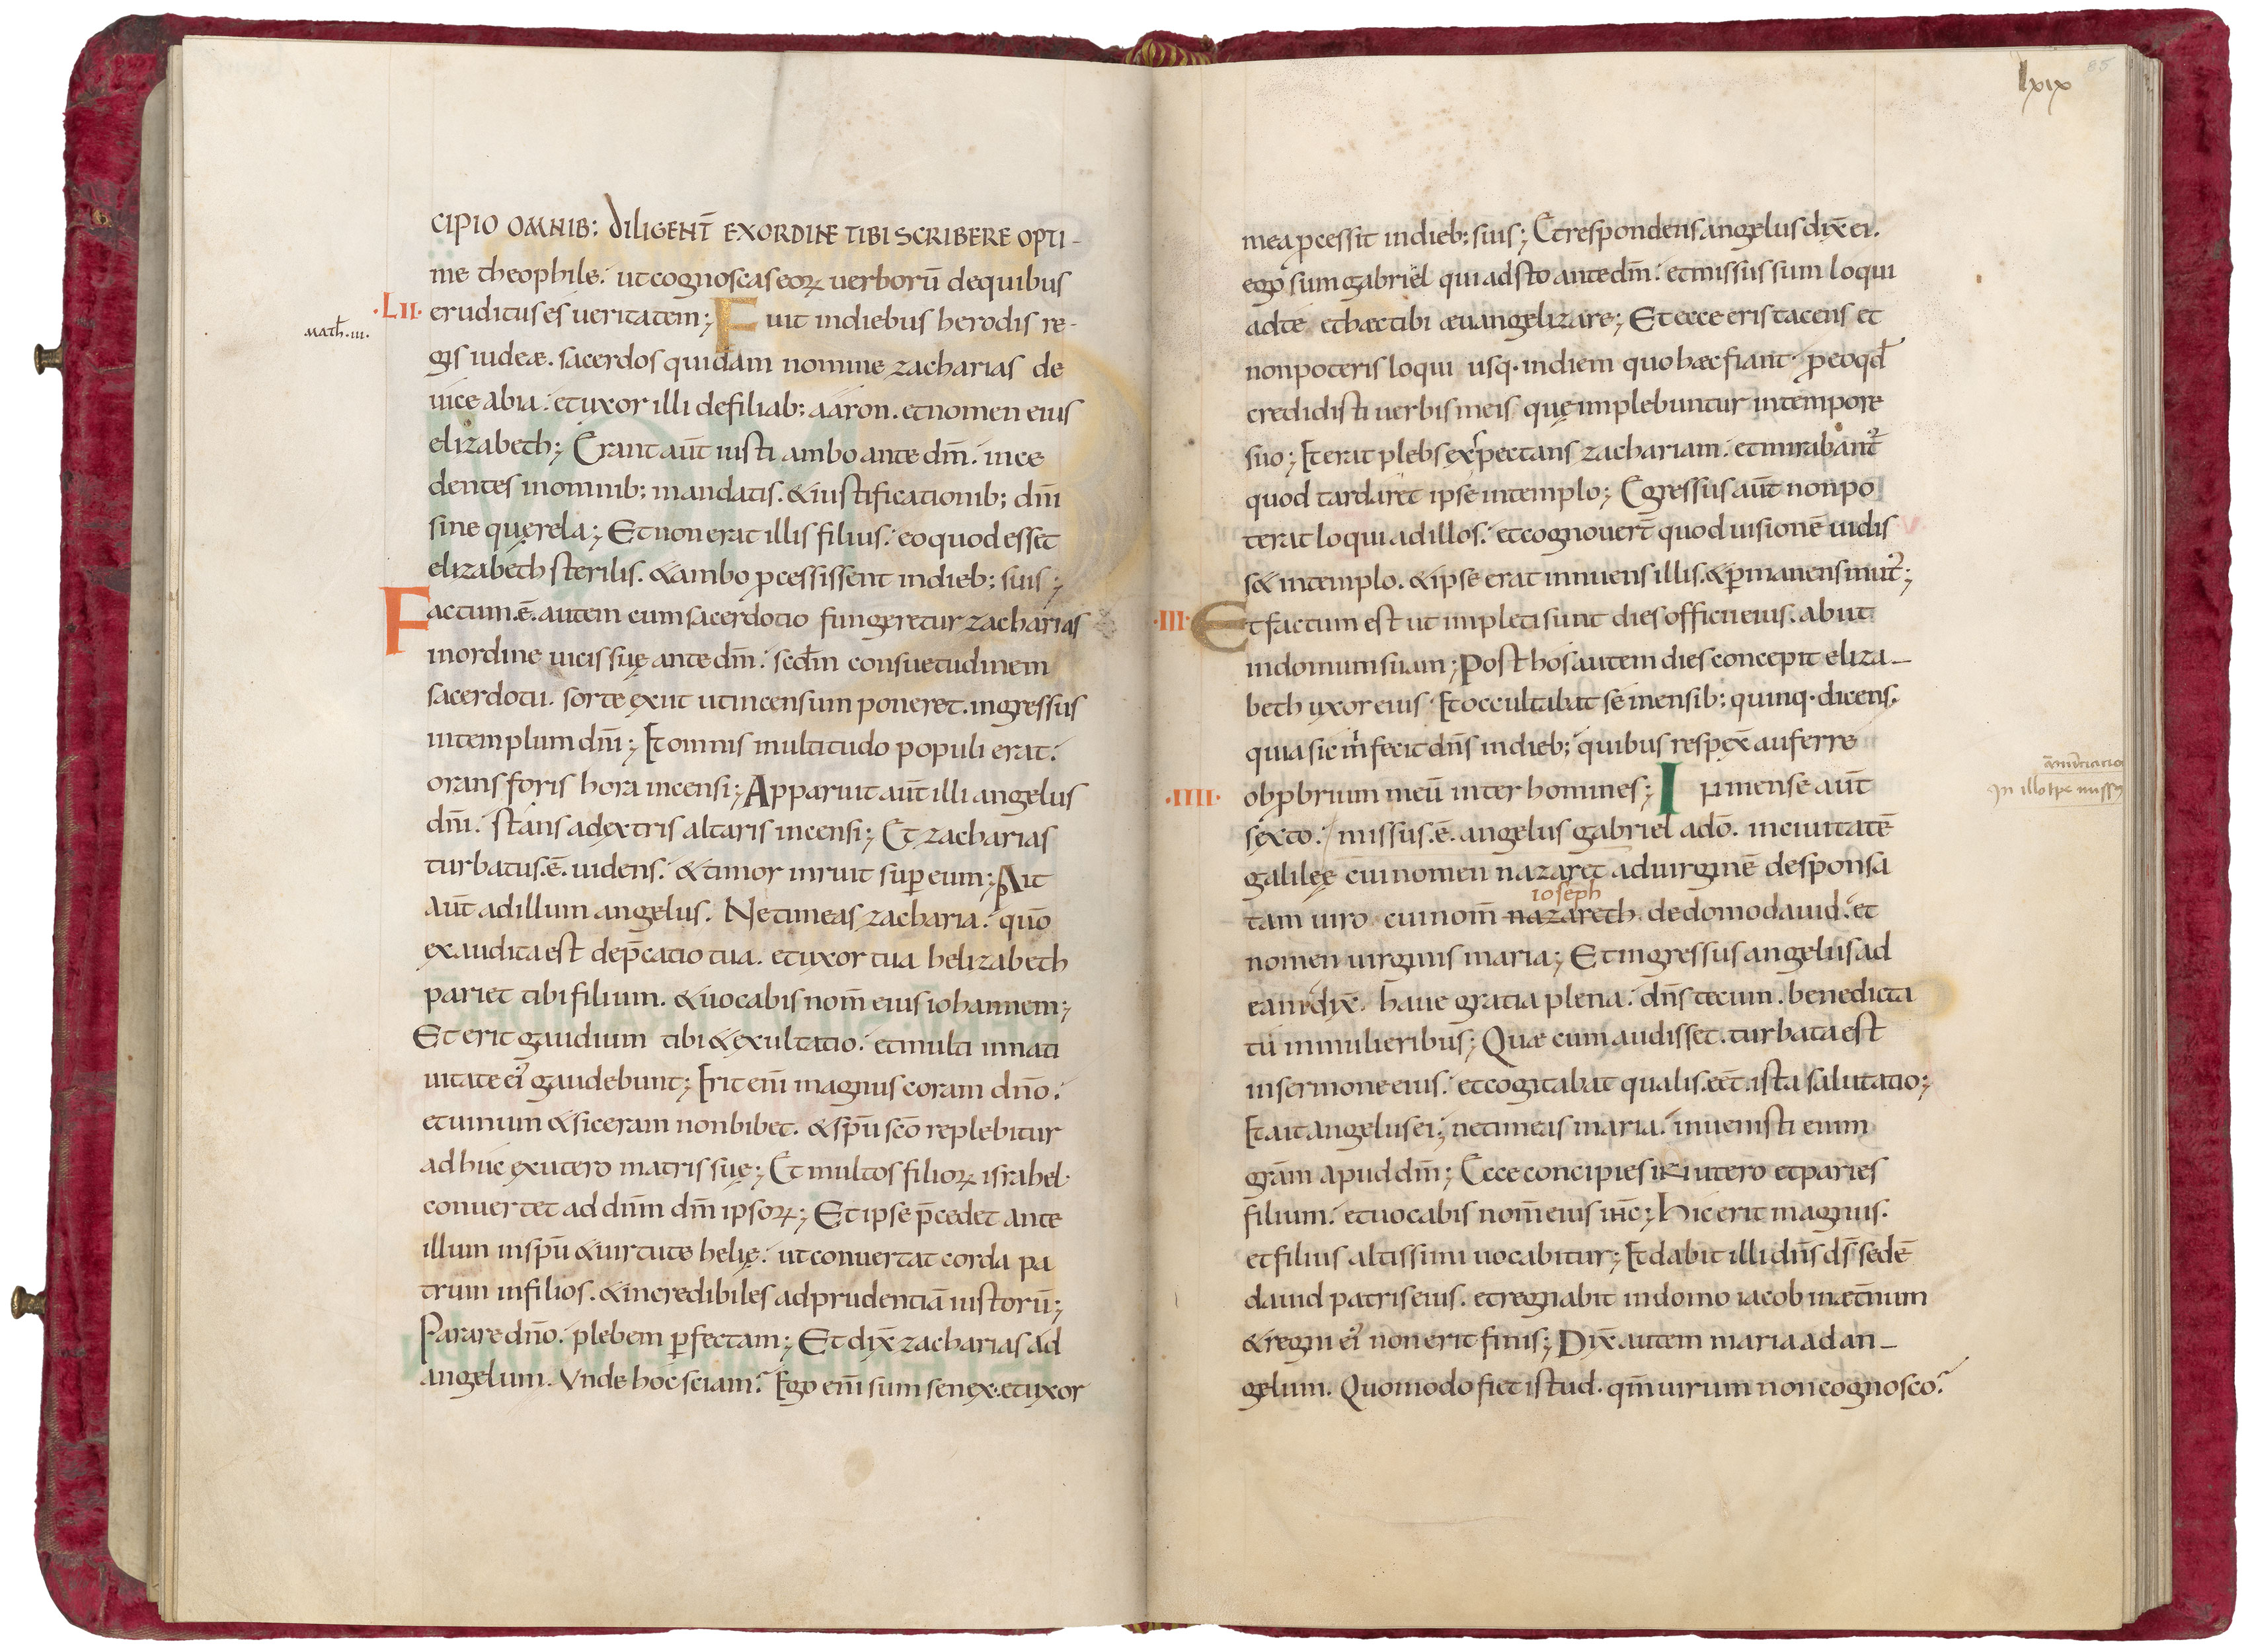 CIPIO OMNIB; DILIGENT̄ EXORDINE TIBI SCRIBERE OPTI-
me theophile. ut cognoscas eoꝝ uerborū dequibus
·LII· eruditus es ueritatem; Fuit indiebus herodis re-
Math̄. III.
gis iudeæ. sacerdos quidam nomine zacharias de
uice abia. et uxor illi defiliab; aaron. et nomen eius
elizabeth; Erant aut̄ iusti ambo ante dm̄. ince
dentes inomnib; mandatis. & iustificationib; dn̄i
sine quęrela; Et non erat illis filius. eo quod esset
elizabeth sterilis. & ambo ꝓcessissent indieb; suis;
Factum.ē. autem cum sacerdotio fungeretur zacharias
inordine uicis suę ante dm̄. scdm̄ consuetudinem
sacerdotii. sorte exiit ut incensum poneret. ingressus
intemplum dn̄i; Et omnis multitudo populi erat.
orans foris hora incensi; Apparuit aut̄ illi angelus
dn̄i. stans adextris altaris incensi; Et zacharias
turbatus.ē. uidens. & timor inruit suꝑ eum; Ait
aut̄ ad illum angelus. Ne timeas zacharia. quō
exaudita est dep̄catio tua. et uxor tua helizabeth
pariet tibi filium. & uocabis nom̄ eius iohannem;
Et erit gaudium tibi & exultatio. et multi innati
uitate ei᾽ gaudebunt; Erit eni̅ magnus coram dn̄o.
et uinum & siceram non bibet. & sp̄u sc̄o replebitur
adhuc exutero matris suę; Et multos filioꝝ israhel.
conuertet ad dn̄m dm̄ ipsoꝝ; Et ipse p̄cedet ante
illum insp̄u & uirtute helię. ut conuertat corda pa
trum infilios. & incredibiles ad prudentiā iustorū;
Parare dn̄o. plebem ꝑfectam; Et dix̄ zacharias ad
angelum. Vnde hoc sciam? Ego eni̅ sum senex. et uxor
lxix 85
mea ꝓcessit indieb; suis; Et respondens angelus dix̄ ei.
ego sum gabriel qui adsto ante dm̄. et missus sum loqui
ad te et hæc tibi æuangelizare; Et ecce eris tacens et
non poteris loqui usq· indiem quo hæc fiant. ꝓ eo qd̄
credidisti uerbis meis quę implebuntur intempore
suo; Et erat plebs exspectans zachariam. et mirabant᾽
quod tardaret ipse intemplo; Egressus aut̄ non po
terat loqui ad illos. et cognouer̄t quod uisionē uidis
s& intemplo. & ipse erat innuens illis. & ꝑmanens mut᾽;
·III· Et factum est ut impleti sunt dies officii eius. abiit
indomum suam; Post hos autem dies concepit eliza-
beth uxor eius. Et occultabat se mensib; quinq· dicens.
quia sic m̄ fecit dn̄s indieb; quibus respex̄ auferre
·IIII· obꝓbrium meū inter homines; In mense aut̄
sexto. missus.ē. angelus gabriel a dō. inciuitatē
In illo tp̄e missus
galileę cui nomen nazaret ad uirginē desponsa
ioseph
tam uiro cui nom̄ nazareth. de domo dauid. et
nomen uirginis maria; Et ingressus angelus ad
eam dix̄. haue gratia plena. dn̄s tecum. benedicta
tu inmulieribus; Quæ cum audisset. turbata est
insermone eius. et cogitabat qualis.eēt. ista salutatio;
Et ait angelus ei; ne timeas maria. inuenisti enim
grām apud dm̄; Ecce concipies in utero et paries
filium. et uocabis nom̄ eius ih̄c; Hic erit magnus.
et filius altissimi uocabitur; Et dabit illi dn̄s ds̄ sedē
dauid patris eius. et regnabit indomo iacob inæt̄num
& regni ei᾽ non erit finis; Dix̄ autem maria ad an-
gelum. Quomodo fiet istud. qm̄ uirum non cognosco?